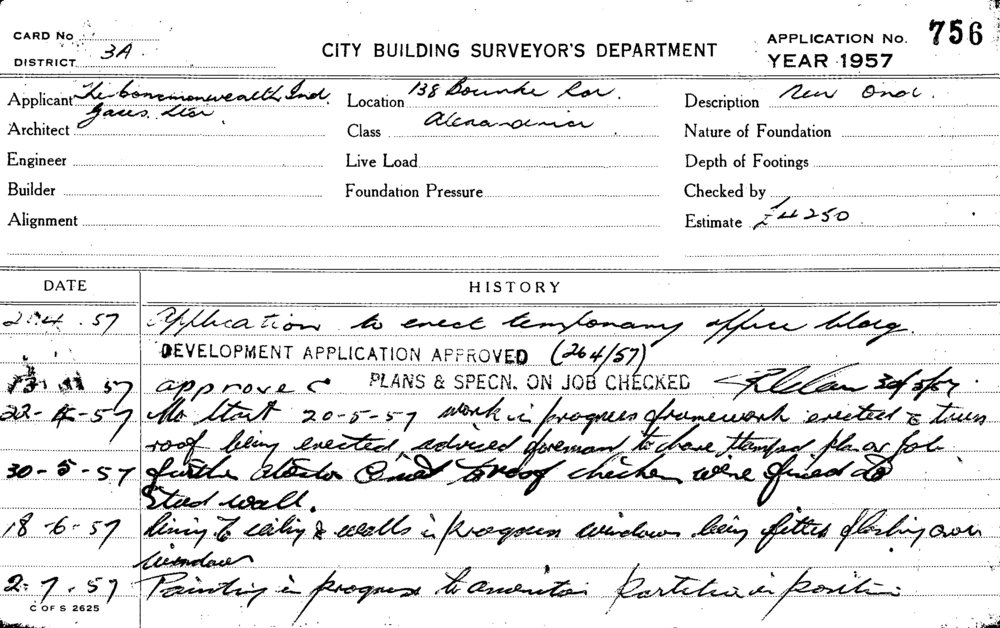 CARD No
DISTRICT 3A
CITY BUILDING SURVEYOR'S DEPARTMENT
APPLICATION No. 756
YEAR 1957
Applicant The Commonwealth Ind.
Gases
Location 138 Bourke
Description New
Architect
Class Alexandria
Nature of Foundation
Engineer
Live Load
Depth of Footings
Builder
Foundation Pressure
Checked by
Alignment
Estimate £4250
DATE HISTORY
57 Application to erect temporary office bldg.
DEVELOPMENT APPLICATION APPROVED (264/57)
57 approved PLANS & SPECN. ON JOB CHECKED
57 No Start 20-5-57 work in progress framework erected & truss
roof being erected advised foreman to have stamped plan on job
30-5-57 further roof were fixed to
Stud wall.
18-6-57 lining to ceiling & walls in progress windows being fitted flashing over
windows
2-7-57 Painting in progress partition in position
C OF S 2625